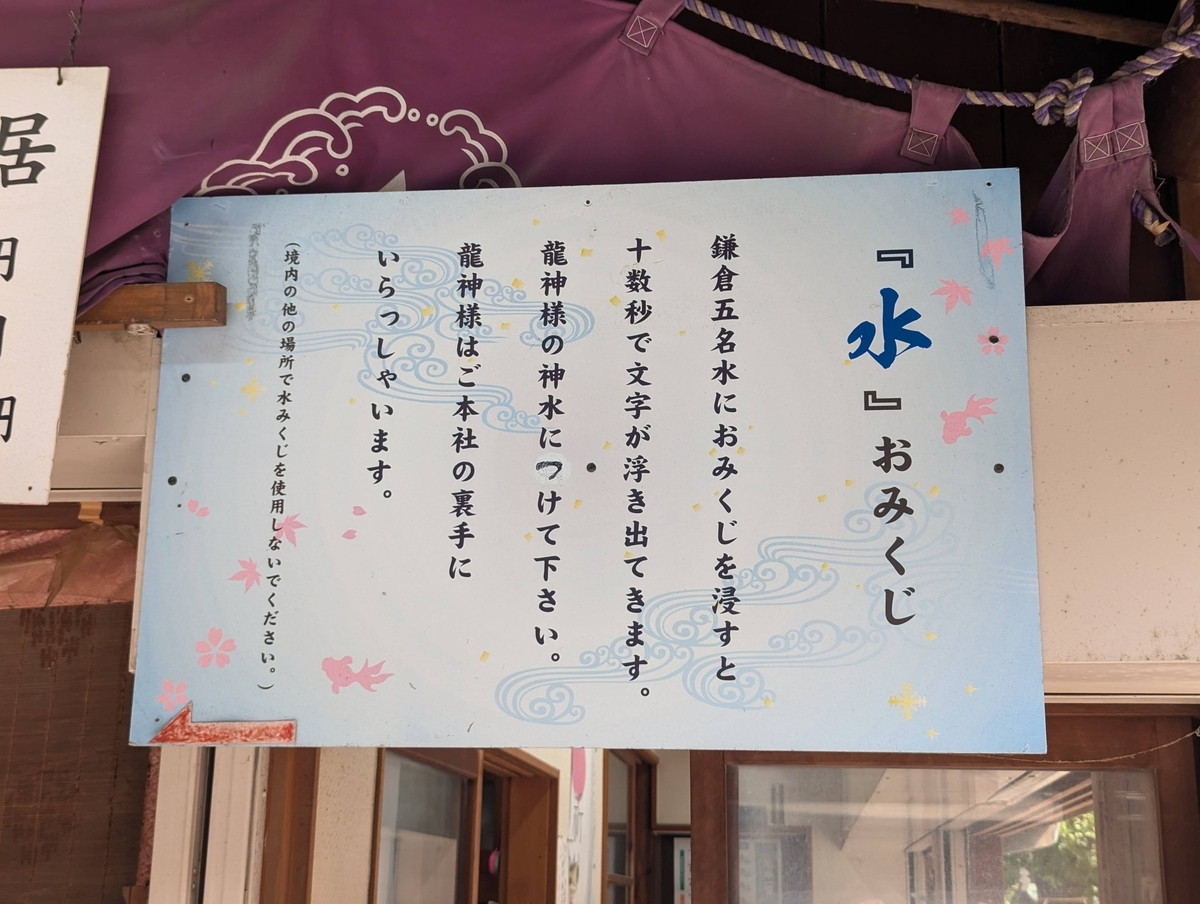 『水』おみくじ
鎌倉五名水におみくじを浸すと
十数秒で文字が浮き出てきます。
龍神様の神水につけて下さい。
龍神様はご本社の裏手に
いらっしゃいます。
(境内の他の場所で水みくじを使用しないでください。)
居
円
円
円